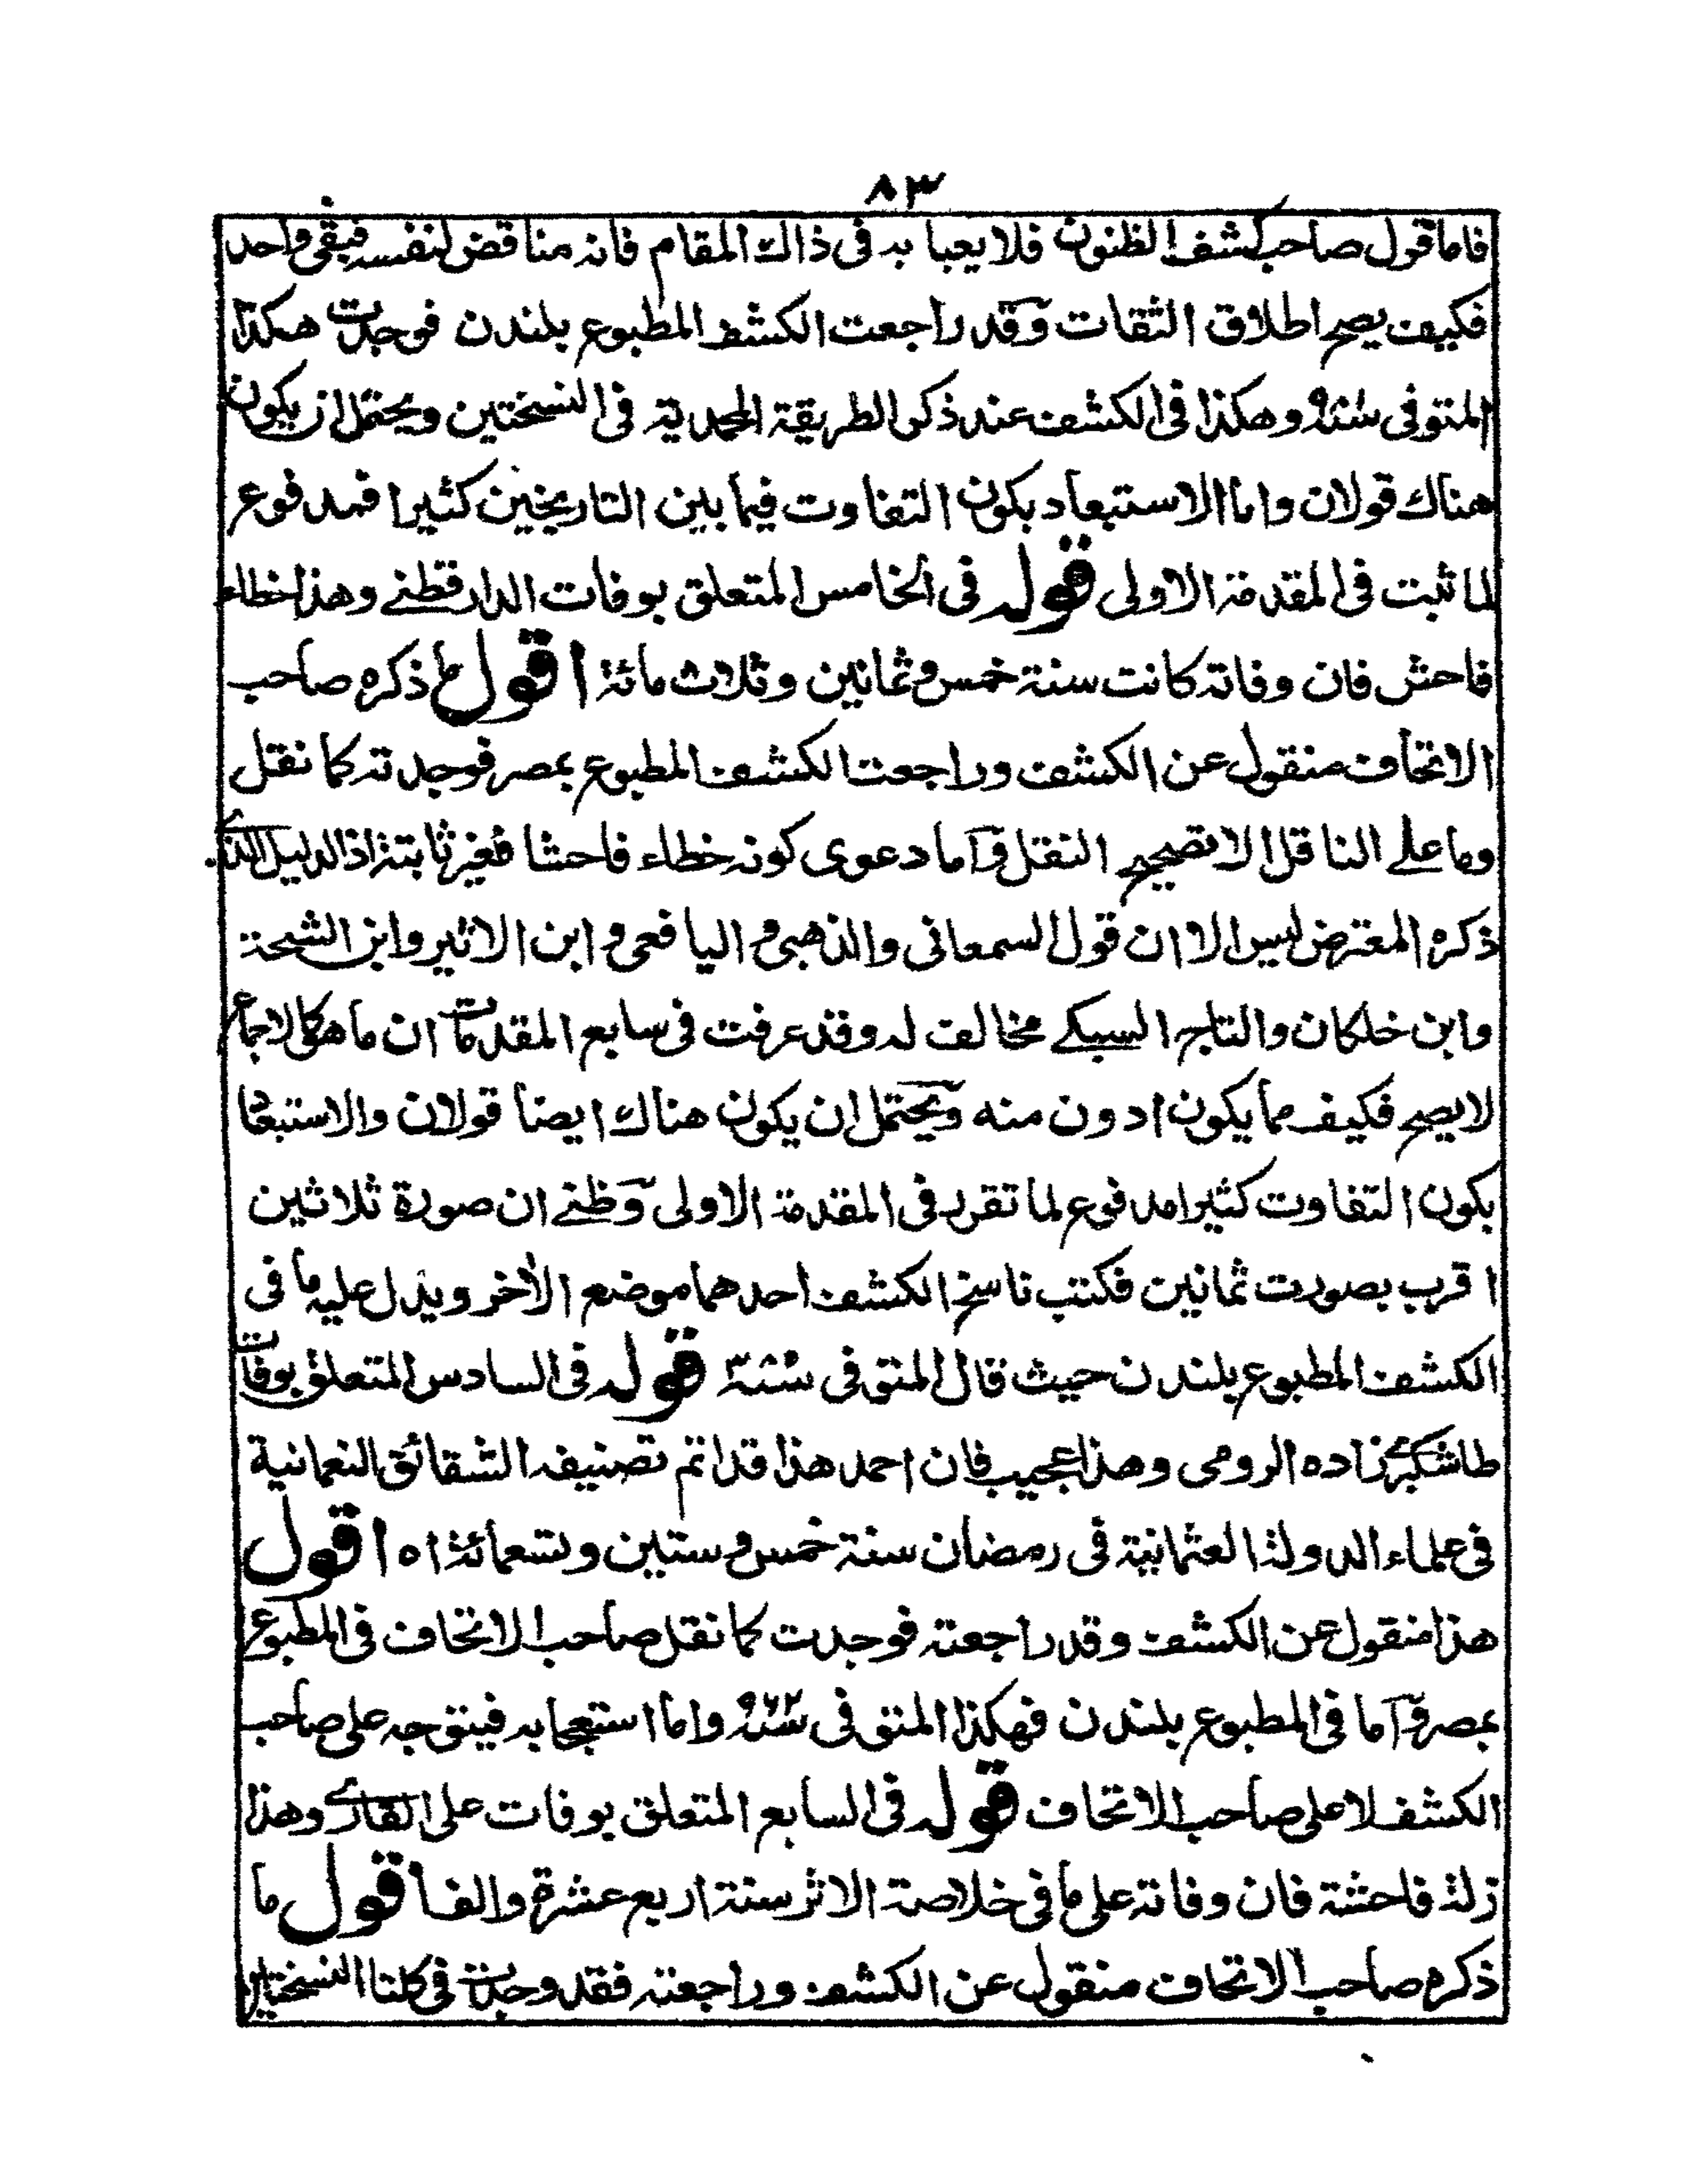 ٨٣
فاما قول صاحب كشف الظنون فلا يعبا به فى ذاك المقام فانه مناقض لنفسه فبقى واحد
فكيف يصح اطلاق الثقات وقد راجعت الكشف المطبوع بلندن فوجدت هكذا
المتوفى وهكذا فى الكشف عند ذكر الطريقة المحمدية فى النسختين ويحتمل ان يكون
هناك قولان واما الاستبعاد بكون التفاوت فيما بين التاريخين كثيرا فمدفوع
لما ثبت فى المقدمة الاولى قوله فى الخامس المتعلق بوفات الدارقطنے وهذا خطاء
فاحش فان وفاته كانت سنة خمس وثمانين وثلاث مائة اقول ما ذكره صاحب
الاتحاف منقول عن الكشف وراجعت الكشف المطبوع بمصر فوجدته كما نقل
وما علے الناقل الا تصحيح النقل وآما دعوى كونه خطاء فاحشا فغير ثابتة اذ الدليل الذے
ذكره المعترض ليس الا ان قول السمعانى والذهبى واليافعى وابن الاثير وابن الشحنة
وابن خلكان والتاج السبكے مخالف له وقد عرفت فى سابع المقدمات ان ما هو كالاجماع
لا يصح فكيف مما يكون ادون منه ويحتمل ان يكون هناك ايضا قولان والاستبعاد
بكون التفاوت كثيرا مدفوع لما تقرر فى المقدمة الاولى وظنے ان صورة ثلاثين
اقرب بصورت ثمانين فكتب ناسخ الكشف احدهما موضع الأخر ويدل عليه ما فى
الكشف المطبوع بلندن حيث قال المتوفى قوله فى السادس المتعلق بوفات
طاشكبرے زاده الرومى وهذا عجيب فان احمد هذا قد اتم تصنيفه الشقائق النعمانية
فى علماء الدولة العثمانية فى رمضان سنة خمس وستين وتسعمائة اه اقول
هذا منقول عن الكشف وقد راجعته فوجدت كما نقل صاحب الاتحاف فى المطبوع
بمصر وآما فى المطبوع بلندن فهكذا المتوفى سنة ٩٦٢ واما استعجابه فيتوجه على صاحب
الكشف لا على صاحب الاتحاف قوله فى السابع المتعلق بوفات على القارے وهذا
زلة فاحشة فان وفاته على ما فى خلاصة الاثر سنة اربع عشرة والف اقول ما
ذكره صاحب الاتحاف منقول عن الكشف وراجعته فقد وجدت فى كلتا النسختين